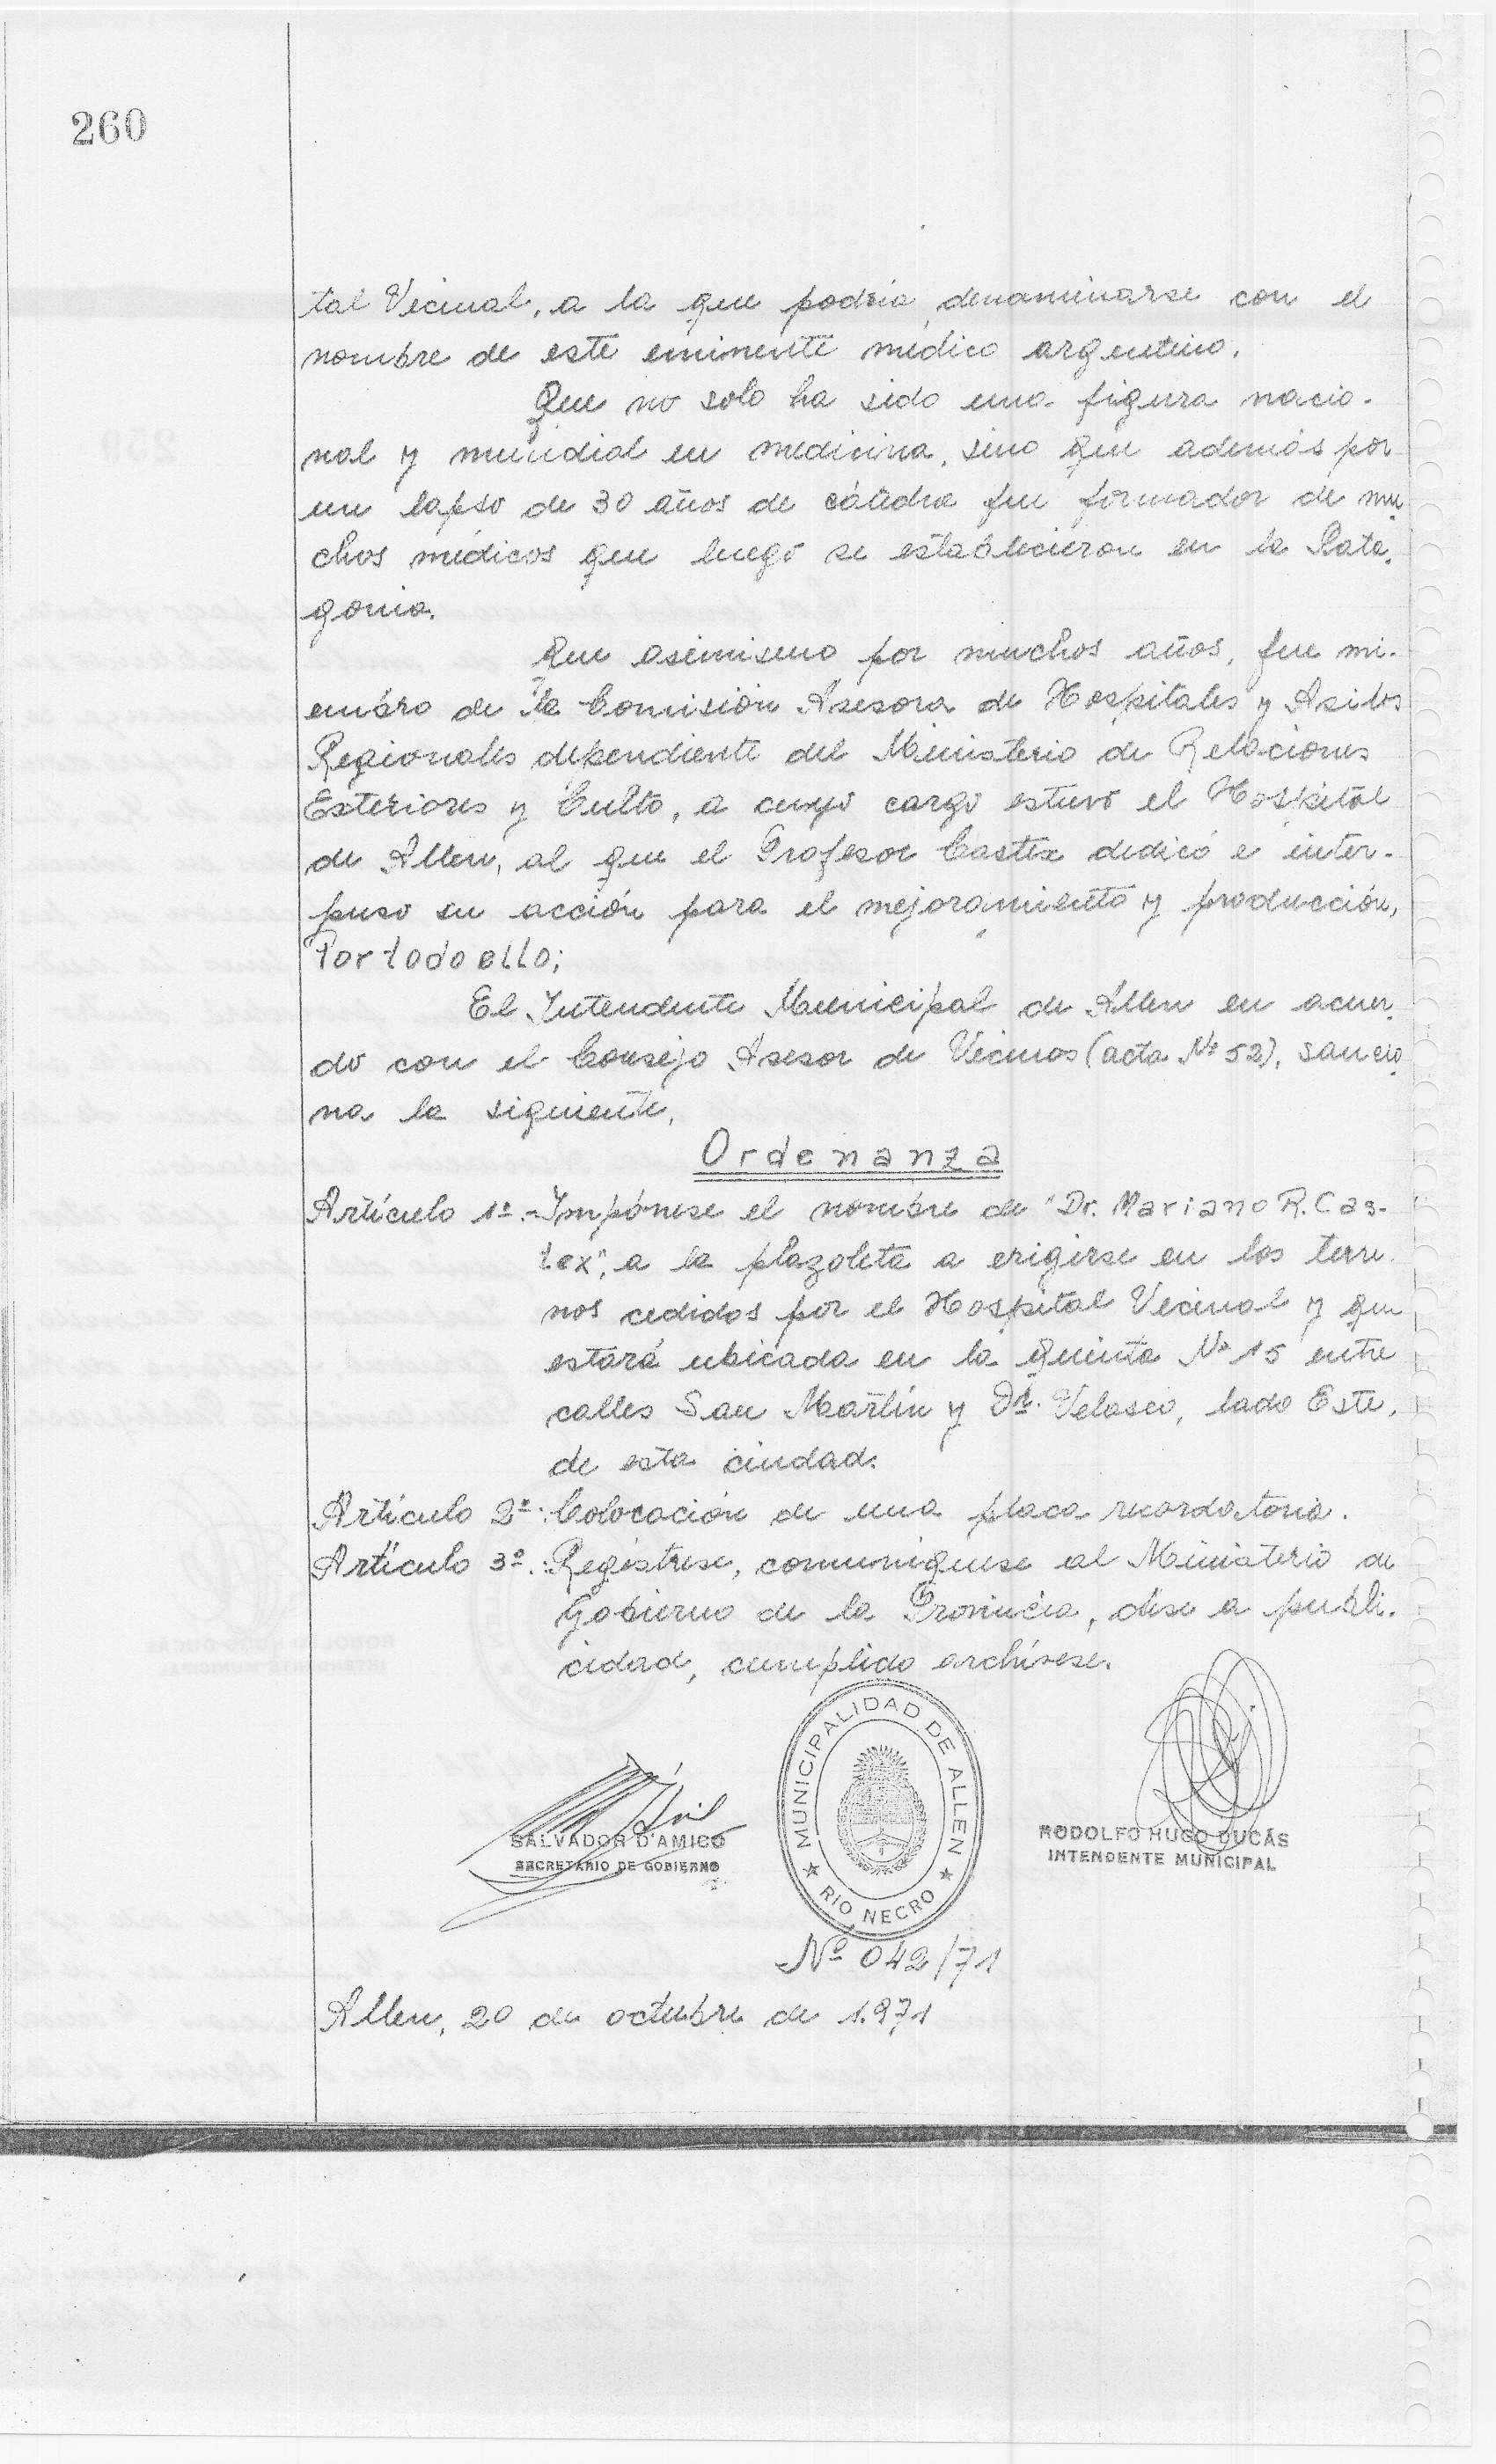 260
tal Vecinal, a la que podria denominarse con el
nombre de este eminente médico argentino.
Que no solo ha sido una figura nacio-
nal y mundial en medicina, sino que además por
un lapso de 30 años de cátedra fue formador de mu
chos médicos que luego se establecieron en la Pata-
gonia.
Que asimismo por muchos años, fue mi-
embro de la Comisión Asesora de Hospitales y Asilos
Regionales dependiente del Ministerio de Relaciones
Exteriores y Culto, a cuyo cargo estuvo el Hospital
de Allen, al que el Profesor Castex dedicó e inter-
puso su acción para el mejoramiento y producción,
Por todo ello;
El Intendente Municipal de Allen en acuer-
do con el Consejo Asesor de Vecinos (acta Nº 52), sancio
na la siguiente,
Ordenanza
Artículo 1º.- Impónese el nombre de "Dr. Mariano R. Cas-
tex", a la plazoleta a erigirse en los terre-
nos cedidos por el Hospital Vecinal y que
estará ubicada en la quinta Nº 15 entre
calles San Martín y Dr. Velasco, lado Este,
de esta ciudad.
Artículo 2º: Colocación de una placa recordatoria.
Artículo 3º: Regístrese, comuníquese al Ministerio de
Gobierno de la Provincia, dése a publi-
cidad, cumplido archívese.
MUNICIPALIDAD DE ALLEN
RIO NEGRO
SALVADOR D'AMICO
SECRETARIO DE GOBIERNO
RODOLFO HUGO DUCÁS
INTENDENTE MUNICIPAL
Nº 042/71
Allen, 20 de octubre de 1.971